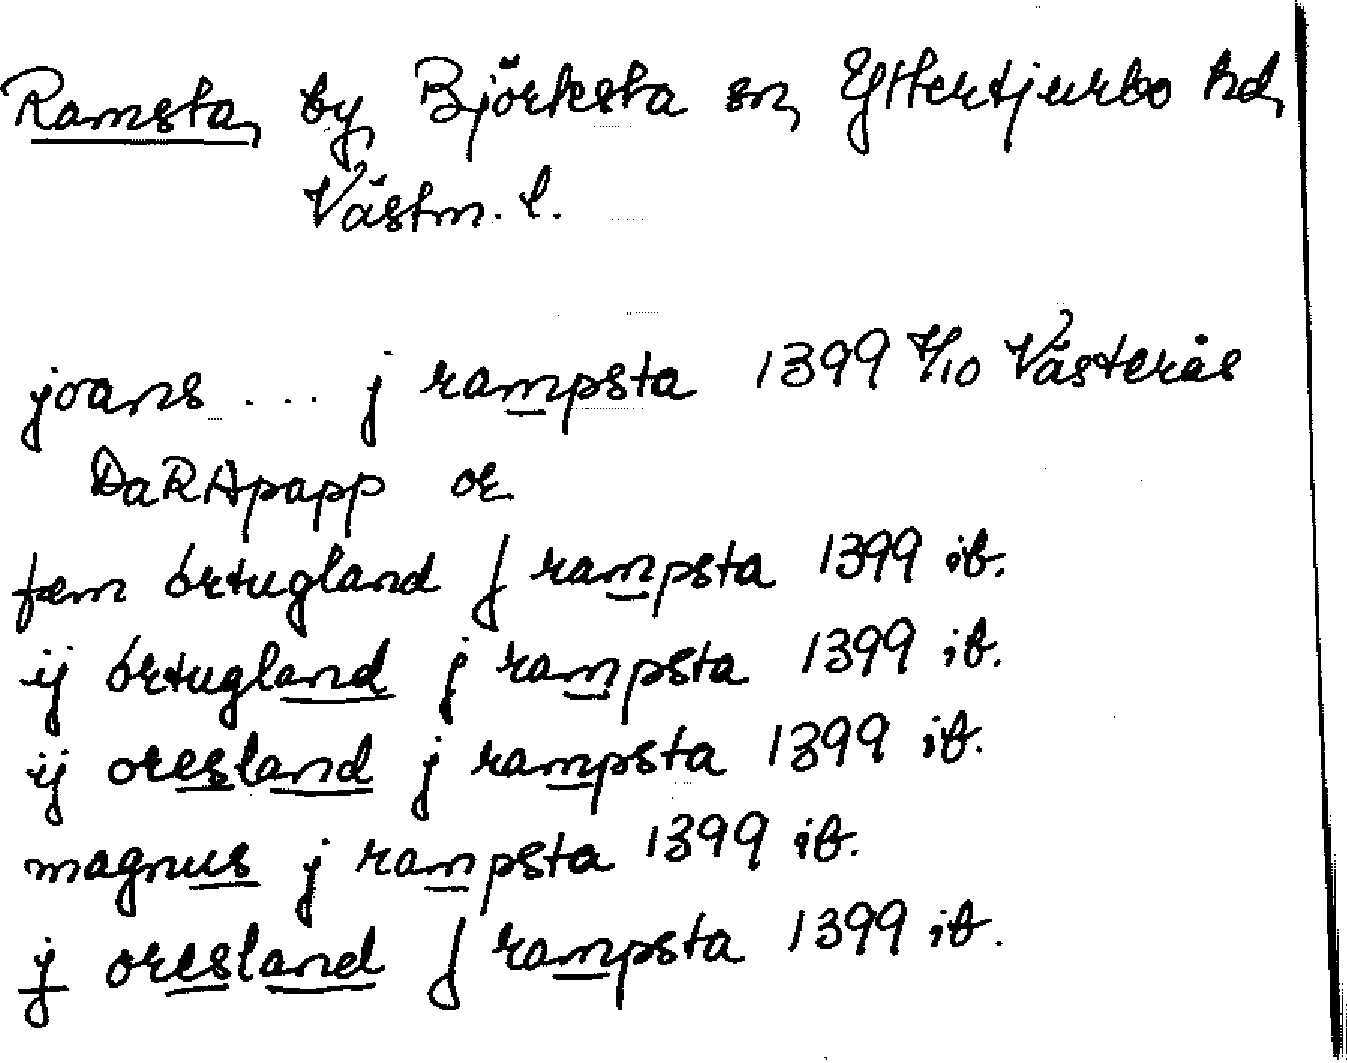 Ramsta, by, Björksta sn, Yttertjurbo hd,
Västm. l.
joans ... j rampsta 1399 /10 Västerås
DaRApapp or
fæm ørtugland j rampsta 1399 ib.
ij ørtugland j rampsta 1399 ib.
ij oresland j rampsta 1399 ib.
magnus j rampsta 1399 ib.
j oresland j rampsta 1399 ib.